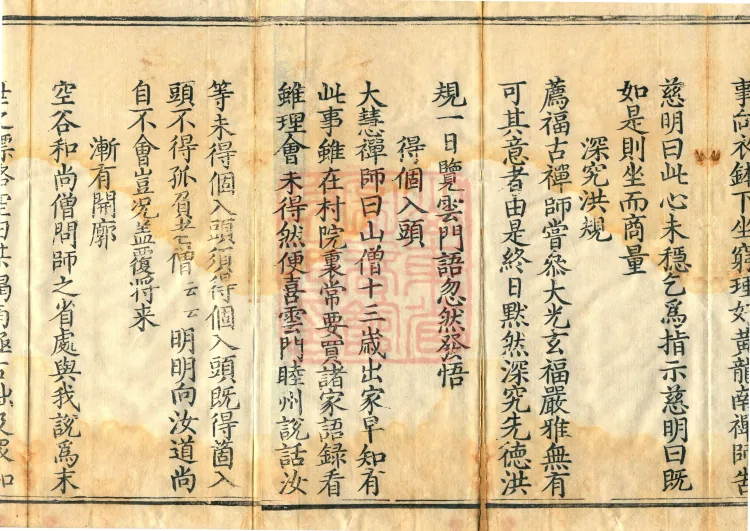 下坐窮理如黃龍南禪師告
慈明曰此心未穩乞爲指示慈明曰既
如是則坐而商量
深究洪規
薦福古禪師嘗叅大光玄福嚴雅無有
可其意者由是終日默然深究先德洪
規一日覽雲門語忽然發悟
得個入頭
大慧禪師曰山僧十三歲出家早知有
此事雖在村院裏常要買諸家語錄看
雖理會未得然便喜雲門睦州說話汝
等未得個入頭須得個入頭既得箇入
頭不得孤負老僧云云明明向汝道尚
自不會豈况盖覆將来
漸有開廓
空谷和尚僧問師之省處與我說爲末